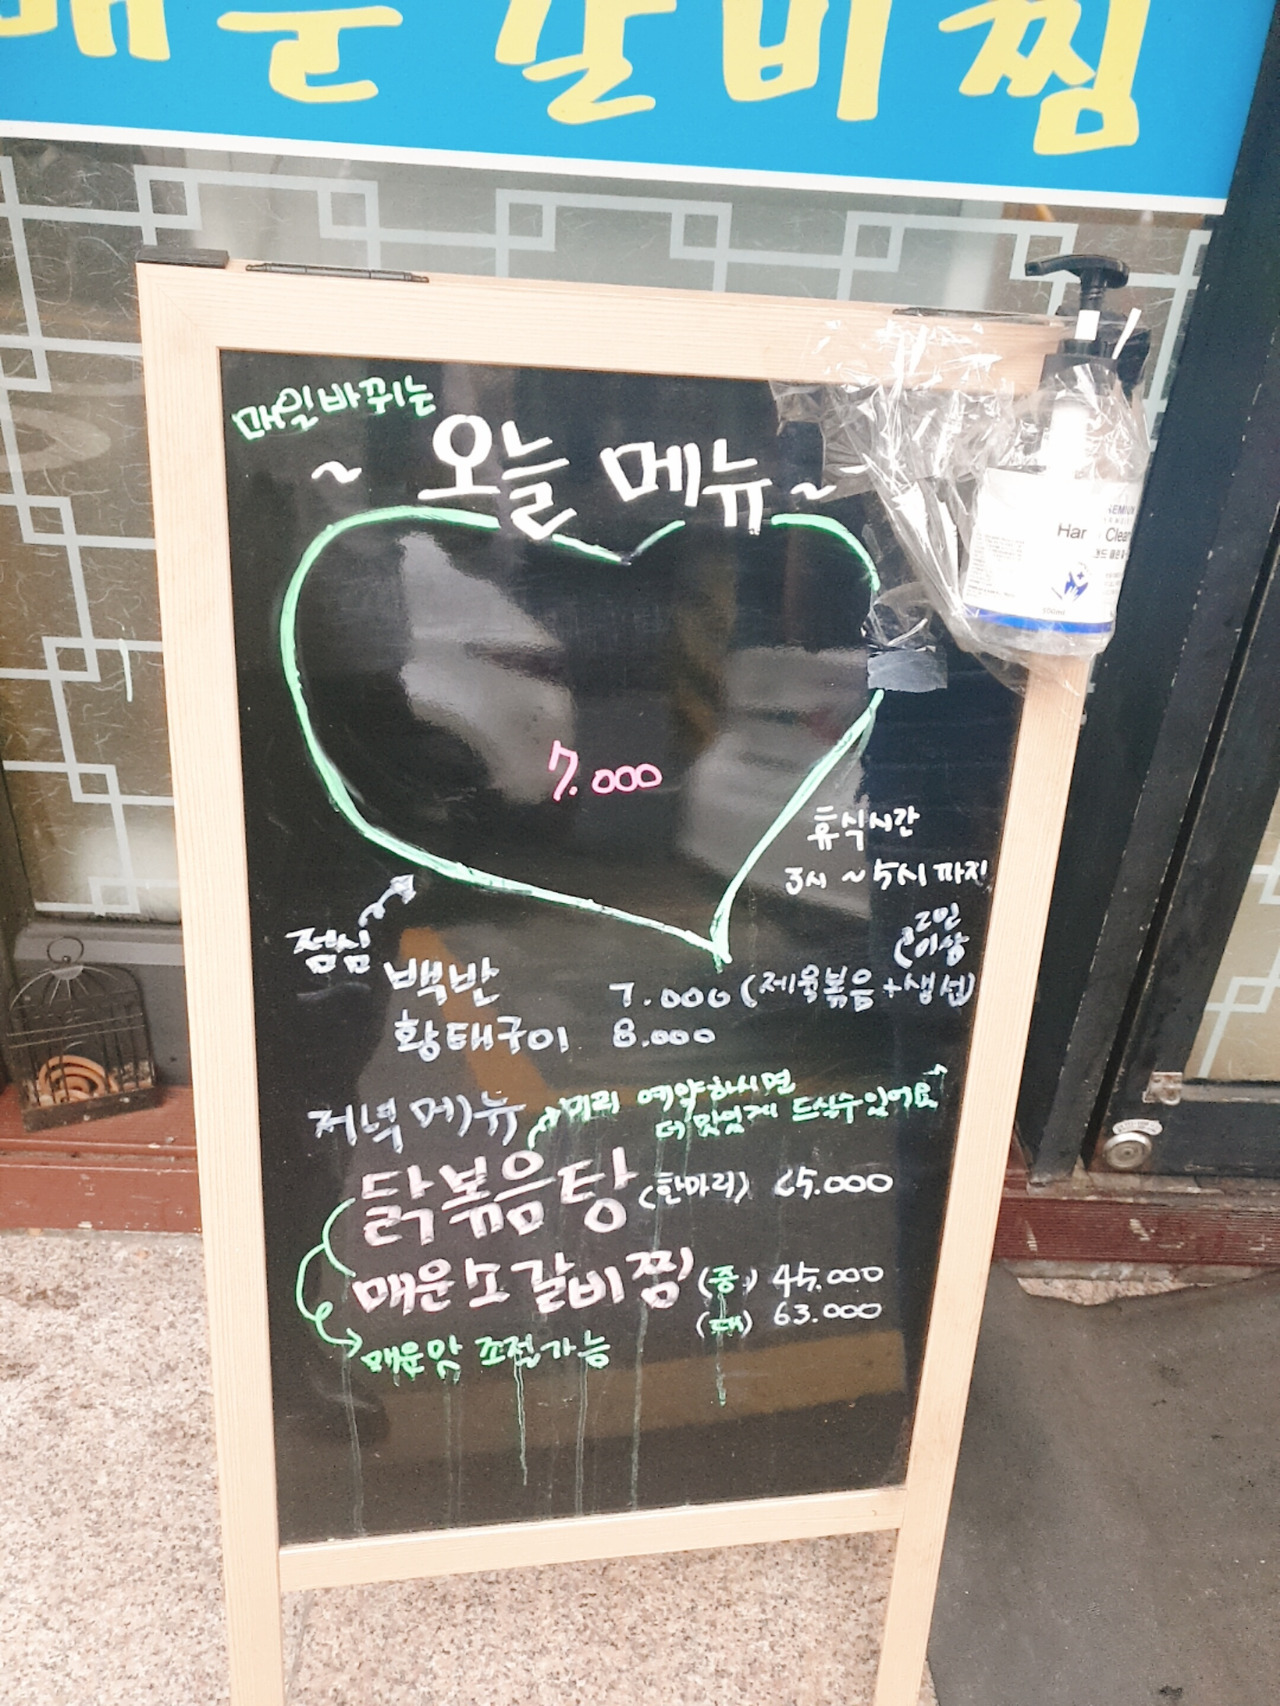 매운갈비찜
매일바뀌는
~ 오늘 메뉴 ~
7.000
휴식시간
3시 ~ 5시 까지
점심
2인
이상
백반 7.000 (제육볶음 + 생선)
황태구이 8.000
저녁 메뉴
미리 예약하시면
더 맛있게 드실수있어요
닭볶음탕 (한마리) 25.000
매운소갈비찜 (중) 45.000
(대) 63.000
매운맛 조절가능
Clean
500ml